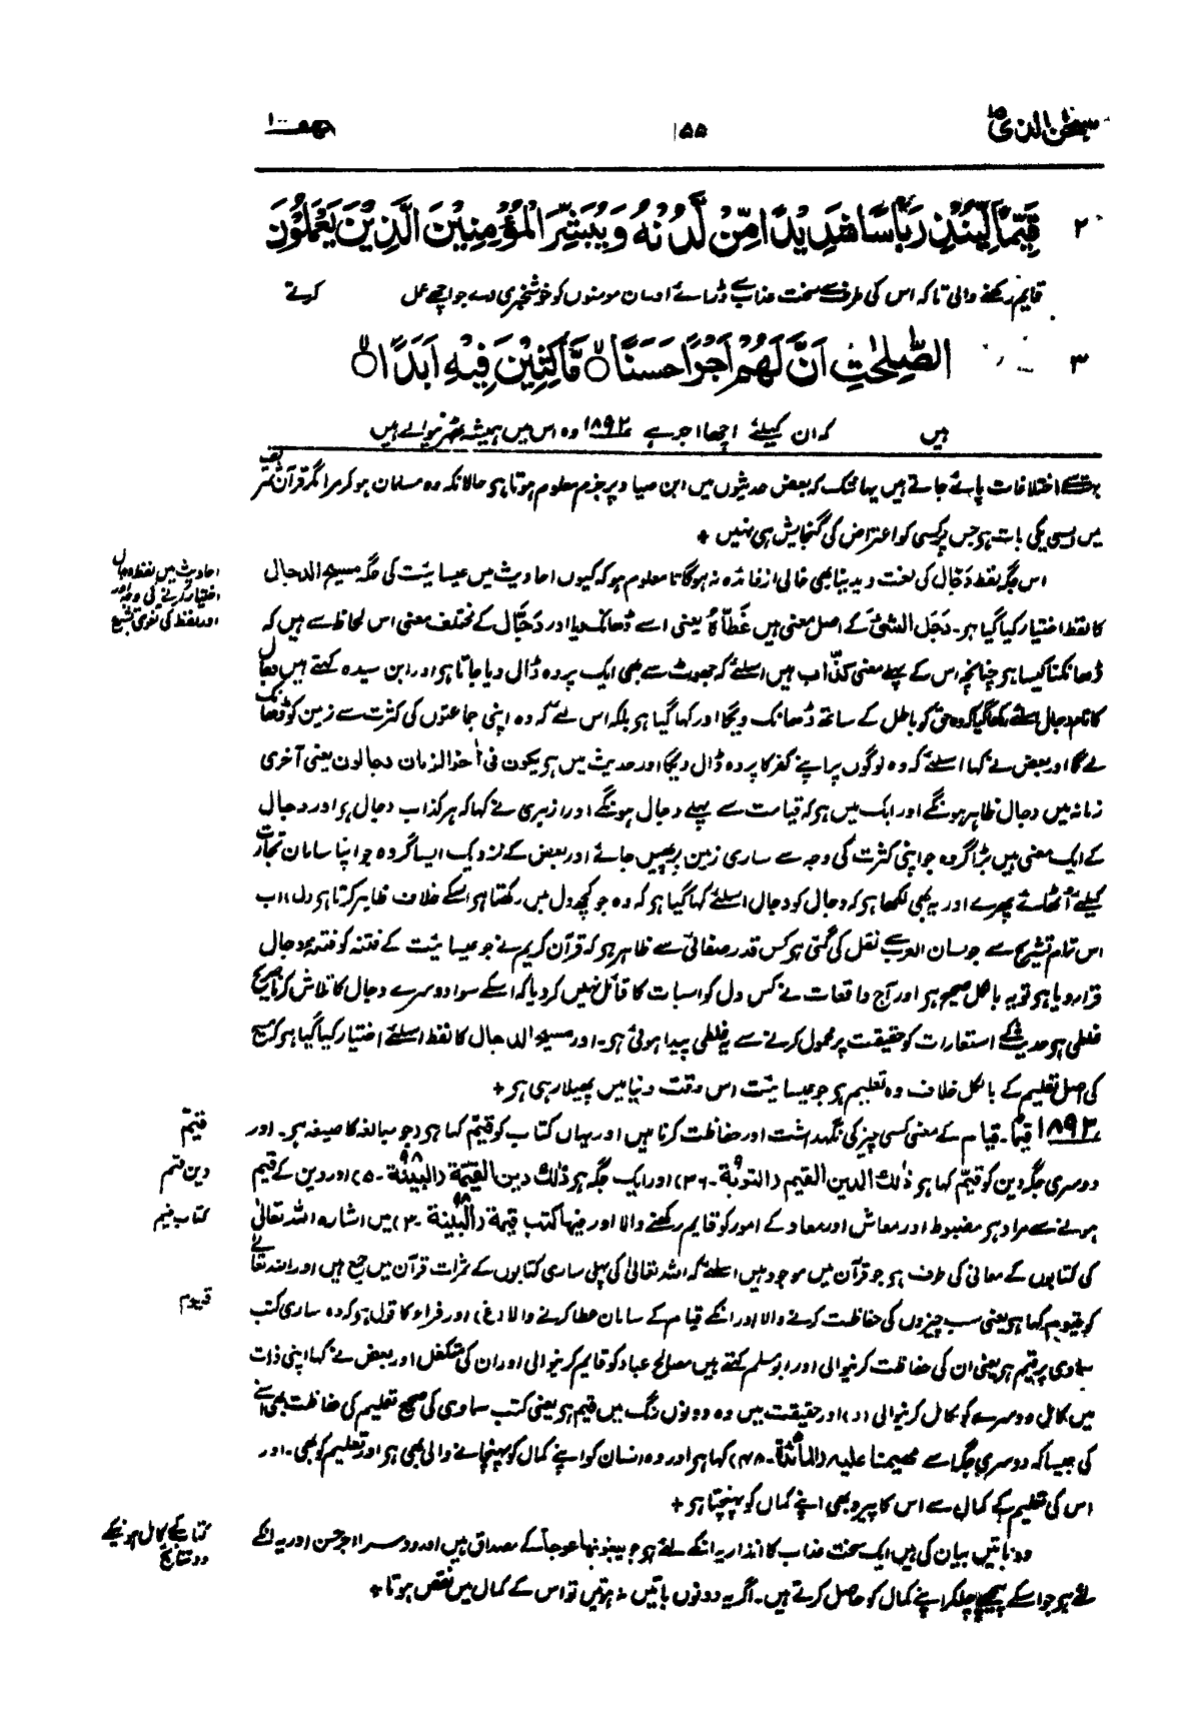 سبحٰن الذی ١٥
١٥٥
الکھف ١٠
٢ قَیِّمًا لِّیُنْذِرَ بَاْسًا شَدِیْدًا مِّنْ لَّدُنْهُ وَیُبَشِّرَ الْمُؤْمِنِیْنَ الَّذِیْنَ یَعْمَلُوْنَ
قایم رکھنے والی تاکہ اس کی طرف سے سخت عذاب سے ڈرائے اور ان مومنوں کو خوشخبری دے جو اچھے عمل کرتے
٣ الصّٰلِحٰتِ اَنَّ لَهُمْ اَجْرًا حَسَنًا مَّاكِثِیْنَ فِیْهِ اَبَدًا
ہیں کہ ان کیلئے اچھا اجر ہے ١٨٩٢ وہ اس میں ہمیشہ ٹھہرنیوالے ہیں
بہت سے اختلافات پائے جاتے ہیں یہانتک کہ بعض حدیثوں میں ابن صیاد پر جزم معلوم ہوتا ہو حالانکہ وہ مسلمان ہو کر مرا مگر قرآن شریف
میں ایسی پکی بات ہو جس پر کسی کو اعتراض کی گنجایش ہی نہیں +
اس جگہ لفظ دَجّال کی لغت دیدینا بھی خالی از فائدہ نہ ہوگا تا معلوم ہو کہ کیوں احادیث میں عیسائیت کی جگہ مسیح الدجال
کا لفظ اختیار کیا گیا ہو۔ دَجَلَ الشیَٔ کے اصل معنی ہیں غَطَّاہُ یعنی اسے ڈھانک دیا اور دَجّال کے مختلف معنی اس لحاظ سے ہیں کہ
ڈھانکنا کیسا ہو چنانچہ اس کے پہلے معنی کذّاب ہیں اسلئے کہ جھوٹ سے بھی ایک پردہ ڈال دیا جاتا ہو اور ابن سیدہ کہتے ہیں دجال
کا نام دجال اسلئے رکھا گیا کہ وہ حق کو باطل کے ساتھ ڈھانک دیگا اور کہا گیا ہو بلکہ اس لئے کہ وہ اپنی جماعتوں کی کثرت سے زمین کو ڈھانک
لے گا اور بعض نے کہا اسلئے کہ وہ لوگوں پر اپنے کفر کا پردہ ڈال دیگا اور حدیث میں ہو یکون فی اٰخر الزمان دجالون یعنی آخری
زمانہ میں دجال ظاہر ہونگے اور ایک میں ہو کہ قیامت سے پہلے دجال ہونگے اور ازہری نے کہا کہ ہر کذاب دجال ہو اور دجال
کے ایک معنی ہیں بڑا گروہ جو اپنی کثرت کی وجہ سے ساری زمین پر پھیل جائے اور بعض کے نزدیک ایسا گروہ جو اپنا سامان تجارت
کیلئے اُٹھائے پھرے اور یہ بھی لکھا ہو کہ دجال کو دجال اسلئے کہا گیا ہو کہ وہ جو کچھ دل میں رکھتا ہو اسکے خلاف ظاہر کرتا ہو (ل)، اب
اس تمام تشریح سے جو لسان العرب سے نقل کی گئی ہو کس قدر صفائی سے ظاہر ہو کہ قرآن کریم نے جو عیسائیت کے فتنہ کو فتنۂ دجال
قرار دیا ہو تو یہ بالکل صحیح ہو اور آج واقعات نے کس دل کو اس بات کا قائل نہیں کر دیا کہ اسکے سوا دوسرے دجال کا تلاش کرنا صریح
غلطی ہو حدیث کے استعارات کو حقیقت پر محمول کرنے سے یہ غلطی پیدا ہوئی ہو۔ اور مسیح الدجال کا لفظ اسلئے اختیار کیا گیا ہو کہ مسیح
کی اصل تعلیم کے بالکل خلاف وہ تعلیم ہو جو عیسائیت اس وقت دنیا میں پھیلا رہی ہو +
١٨٩٢ قیّمًا۔ قیام کے معنی کسی چیز کی نگہداشت اور حفاظت کرنا ہیں اور یہاں کتاب کو قیّم کہا ہو (جو مبالغہ کا صیغہ ہو)۔ اور
دوسری جگہ دین کو قیّم کہا ہو ذٰلك الدین القیم (التوبة۔ ٣٦) اور ایک جگہ ہو ذٰلك دین القیّمة (البیّنة۔ ٥) اور دین کے قیم
ہونے سے مراد ہو مضبوط اور معاش اور معاد کے امور کو قایم رکھنے والا اور فیها کتب قیمة (البیّنة۔ ٣) میں اشارہ اللہ تعالیٰ
کی کتابوں کے معانی کی طرف ہو جو قرآن میں موجود ہیں اسلئے کہ اللہ تعالیٰ کی پہلی ساری کتابوں کے ثمرات قرآن میں جمع ہیں اور اللہ تعالےٰ
کو قیوم کہا ہو یعنی سب چیزوں کی حفاظت کرنے والا اور انکے قیام کے سامان عطا کرنے والا (غ) اور فراء کا قول ہو کہ وہ ساری کتب
سماوی پر قیم ہو یعنی ان کی حفاظت کرنیوالی اور ابو مسلم کہتے ہیں مصالح عباد کو قایم کرنیوالی اور ان کی متکفل اور بعض نے کہا اپنی ذات
میں کامل دوسرے کو کامل کرنیوالی (ر) اور حقیقت میں وہ دونوں رنگ میں قیم ہو یعنی کتب سماوی کی صحیح تعلیم کی حفاظت بھی اسنے
کی جیسا کہ دوسری جگہ اسے مهیمنا علیه (المائدة۔ ٤٨) کہا ہو اور وہ انسان کو اپنے کمال کو پہنچانے والی بھی ہو اور تعلیم کو بھی۔ اور
اس کی تعلیم کے کمال سے اس کا پیرو بھی اپنے کمال کو پہنچتا ہو +
دو باتیں بیان کی ہیں ایک سخت عذاب کا انذار یہ انکے لئے ہو جو یبغونها عوجا کے مصداق ہیں اور دوسرا اجر حسن اور یہ انکے
لئے ہو جو اسکے پیچھے چلکر اپنے کمال کو حاصل کرتے ہیں۔ اگر یہ دونوں باتیں نہ ہوتیں تو اس کے کمال میں نقص ہوتا +
احادیث میں لفظ دجال
اختیار کرنے کی وجہ
اور لفظ کی لغوی تشریح
قیّم
دین قیم
کتاب قیم
قیوم
کتاب کے کامل ہونیکے
دو نتائج